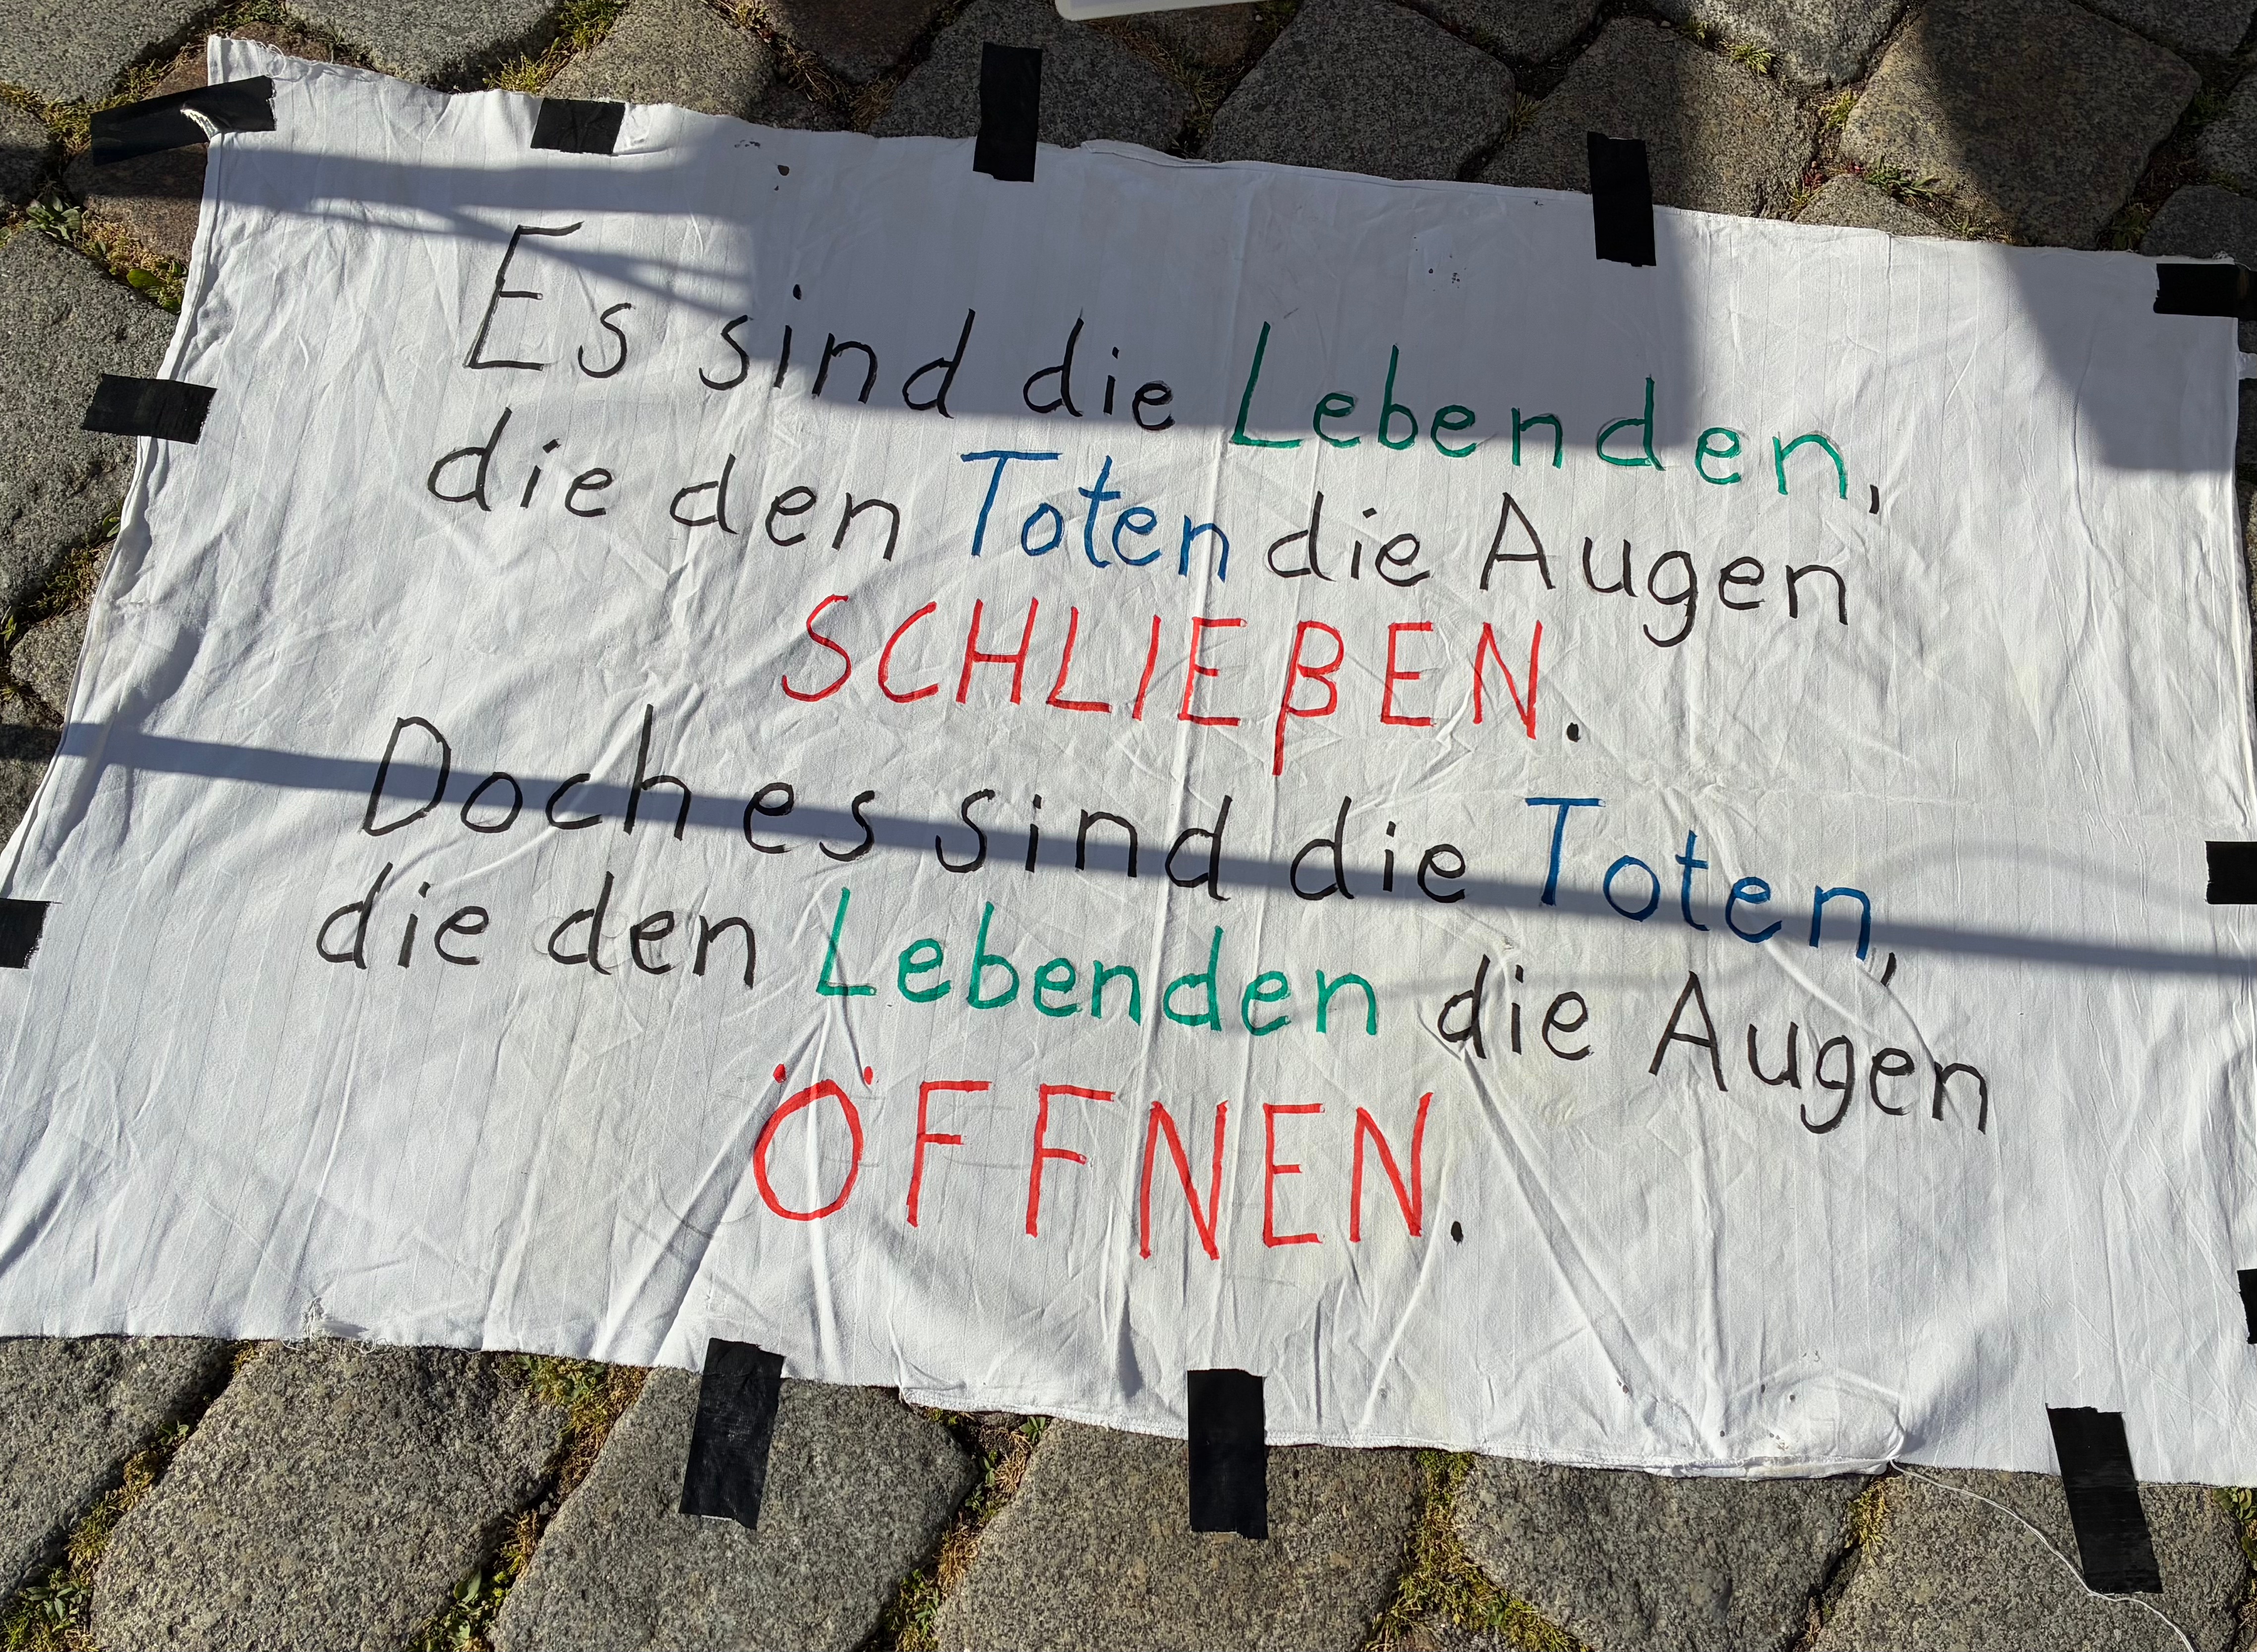 Es sind die Lebenden,
die den Toten die Augen
SCHLIEßEN.
Doch es sind die Toten,
die den Lebenden die Augen
ÖFFNEN.